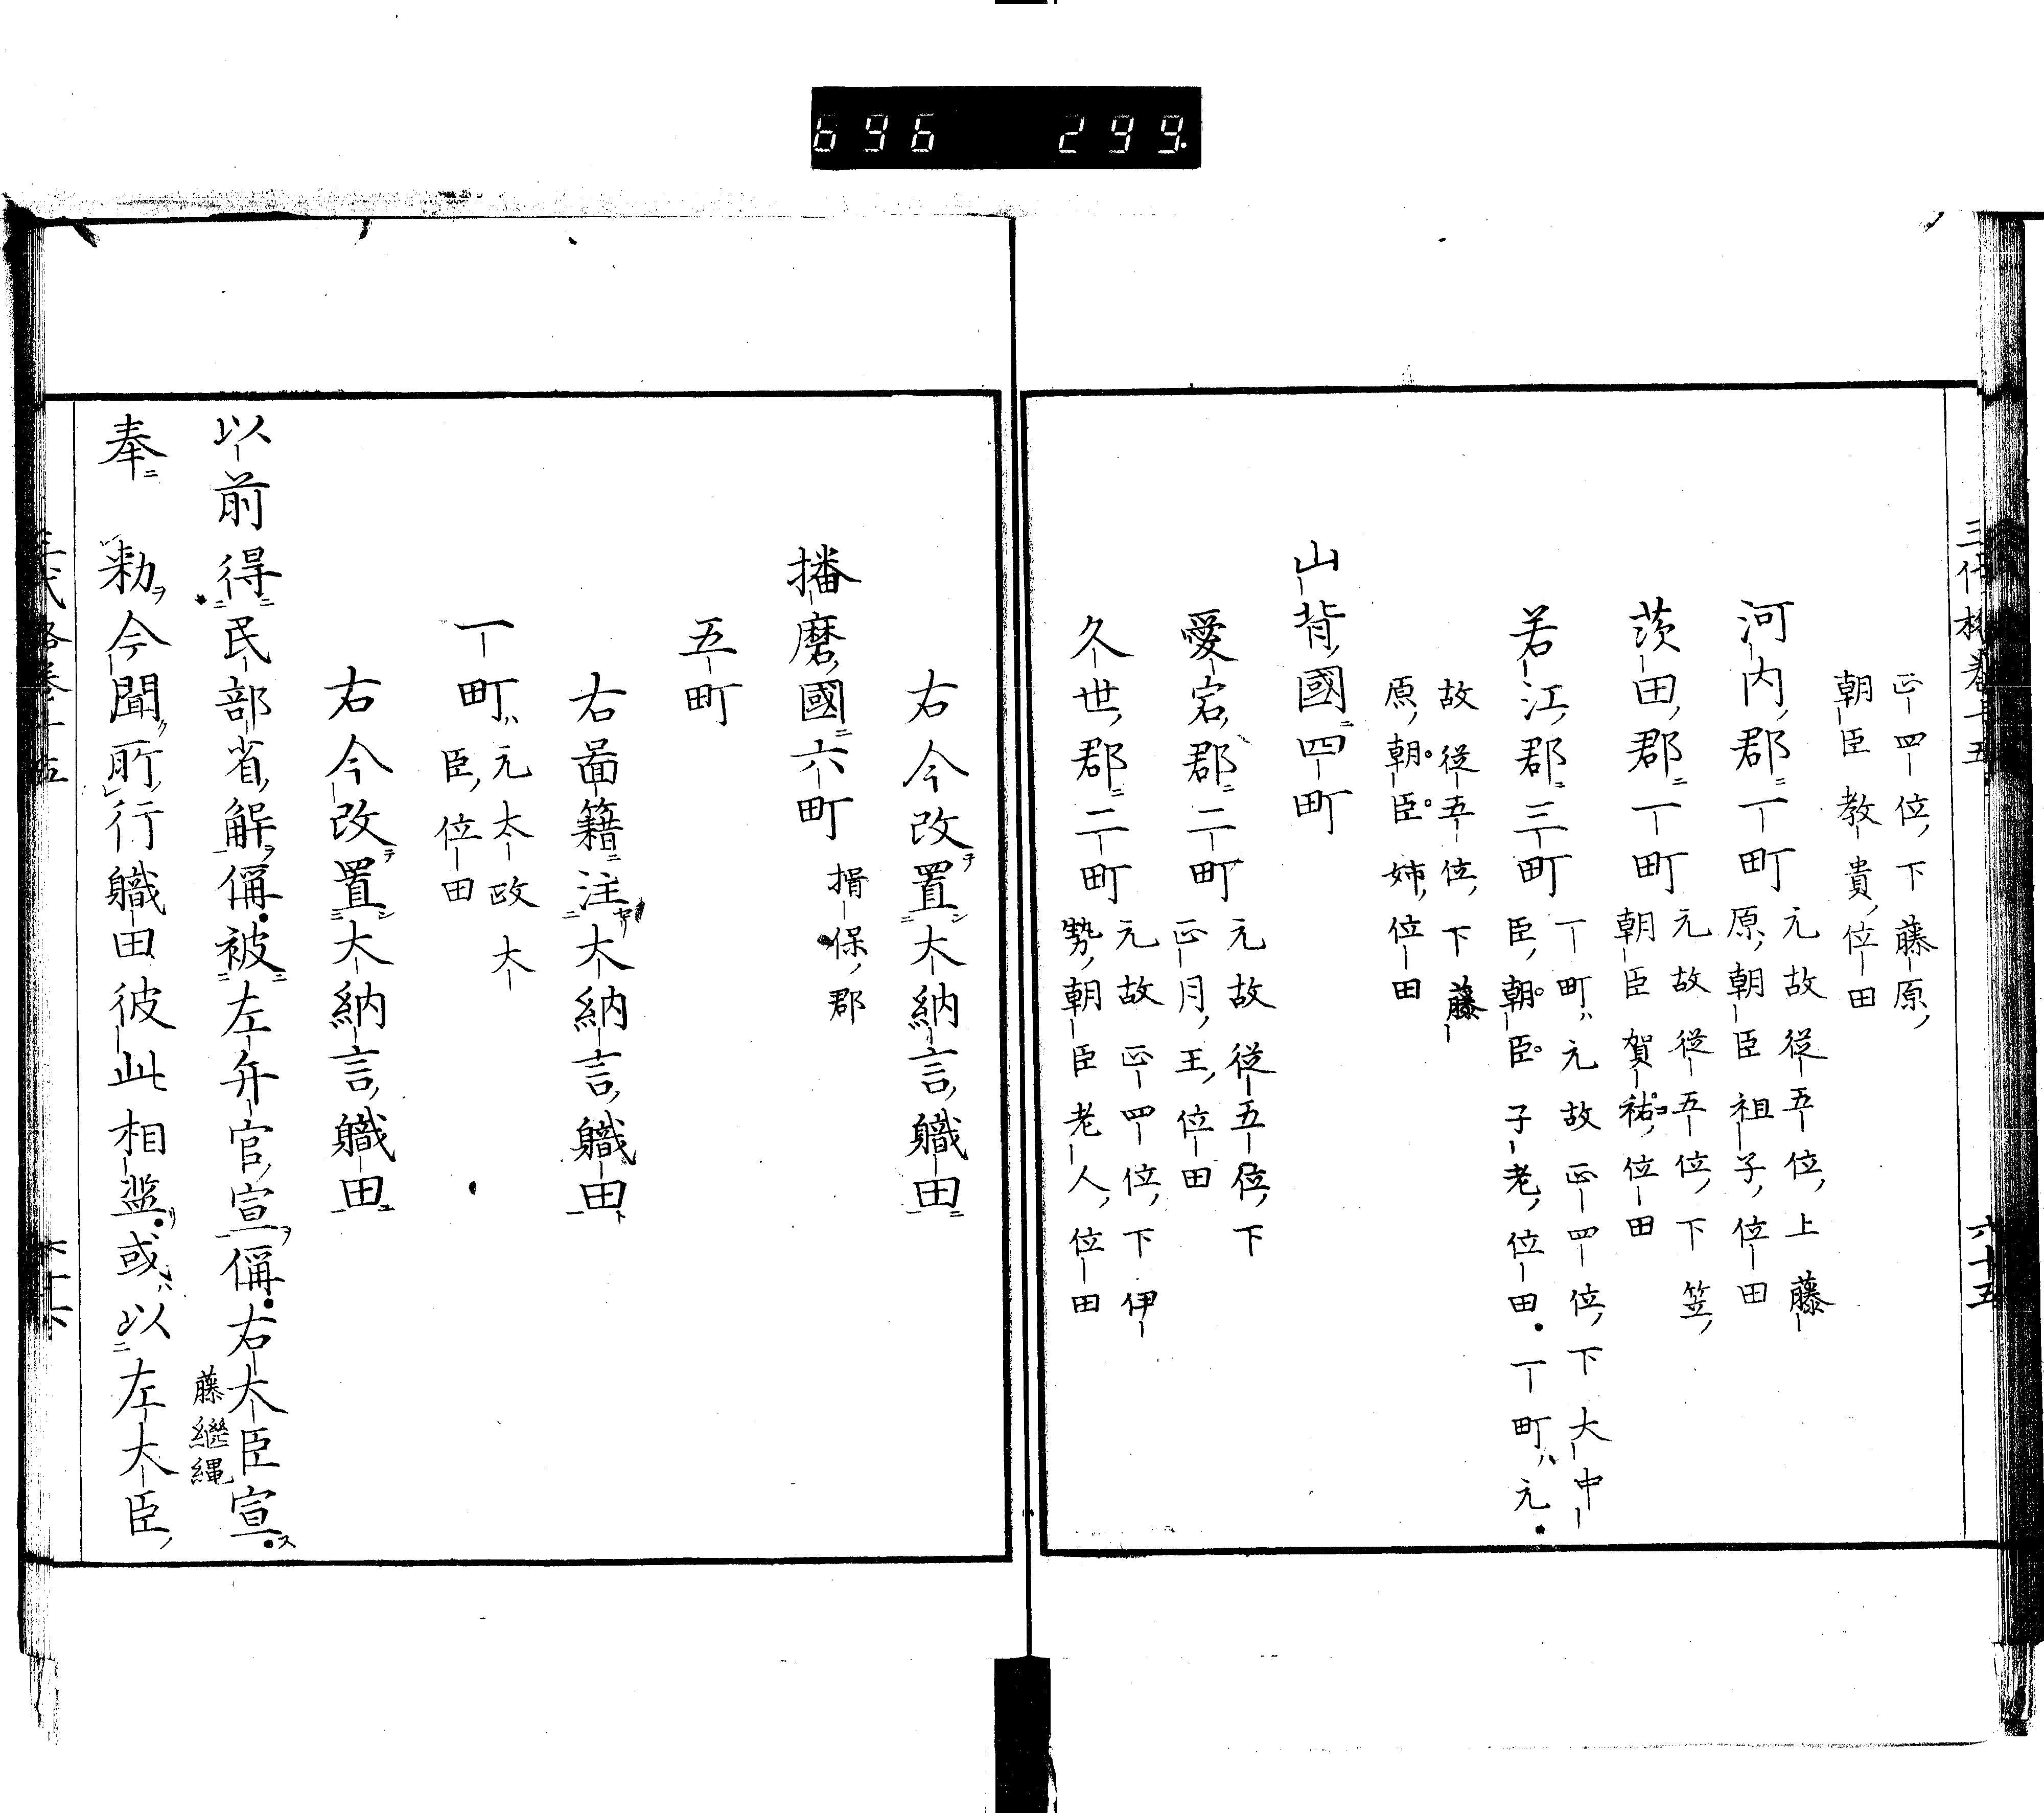 696 299
三代格卷十五
六十五
正四位下藤原
朝臣教貴位田
河內郡一町
元故從五位上藤
原朝臣祖子位田
茨田郡一町
元故從五位下笠
朝臣賀祐位田
若江郡三町
一町ハ元故正四位下大中
臣朝臣子老位田一町ハ元
故從五位下藤
原朝臣姉位田
山背國四町
愛宕郡二町
元故從五位下
正月王位田
久世郡二町
元故正四位下伊
勢朝臣老人位田
右今改置大納言職田
播磨國六町
揖保郡
五町
右啚籍注大納言職田
一町ハ
元太政大
臣位田
右今改置大納言職田
以前得民部省解偁被左弁官宣偁右大臣宣
藤繼縄
奉 勅今聞所行職田彼此相濫或以左大臣